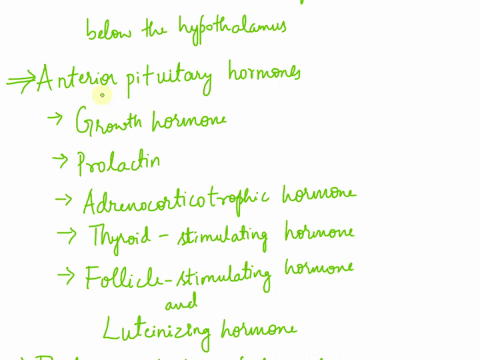 below the hypothalamus
⇒ Anterior pituitary hormones
→ Growth hormone
→ Prolactin
→ Adrenocorticotrophic hormone
→ Thyroid - stimulating hormone
→ Follicle - stimulating hormone
and
Luteinizing hormone